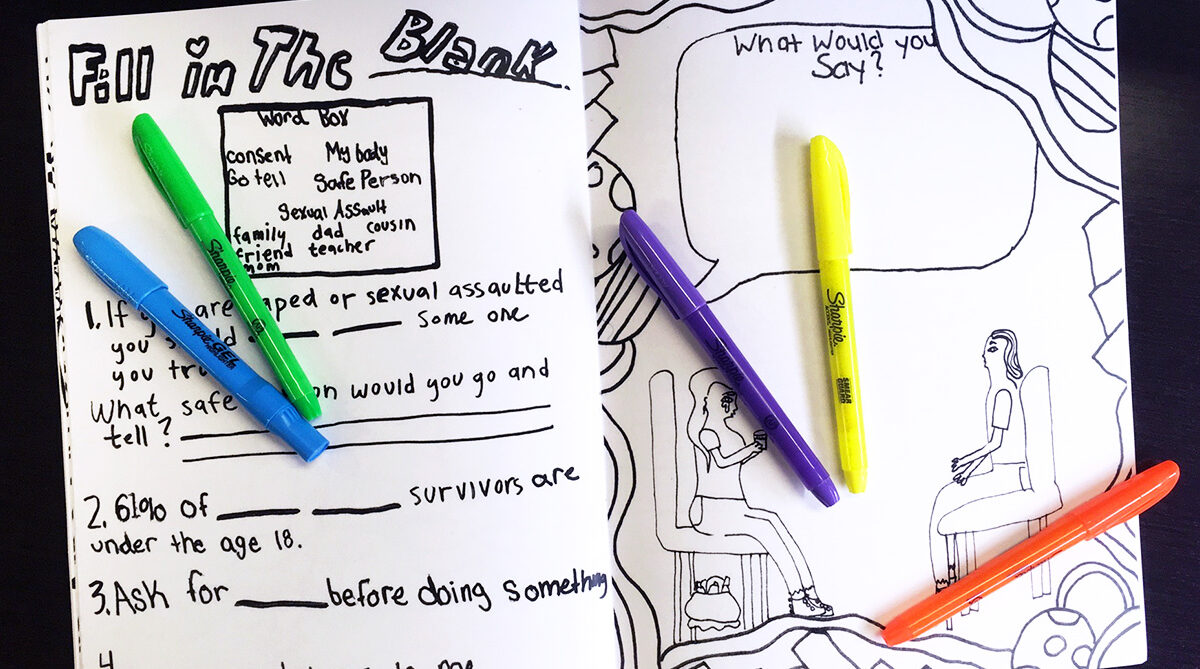 Fill in The Blank
Word Box
consent My body
Go tell Safe Person
Sexual Assault
family dad cousin
friend teacher
mom
1. If are aped or sexual assaulted
you ___ ___ some one
you
What safe would you go and
tell?
2. 61% of ___ ___ survivors are
under the age 18.
3. Ask for ___ before doing something
4.
to me
What Would you
Say?
Sharpie
Sharpie GEL
Sharpie
SMEAR GUARD